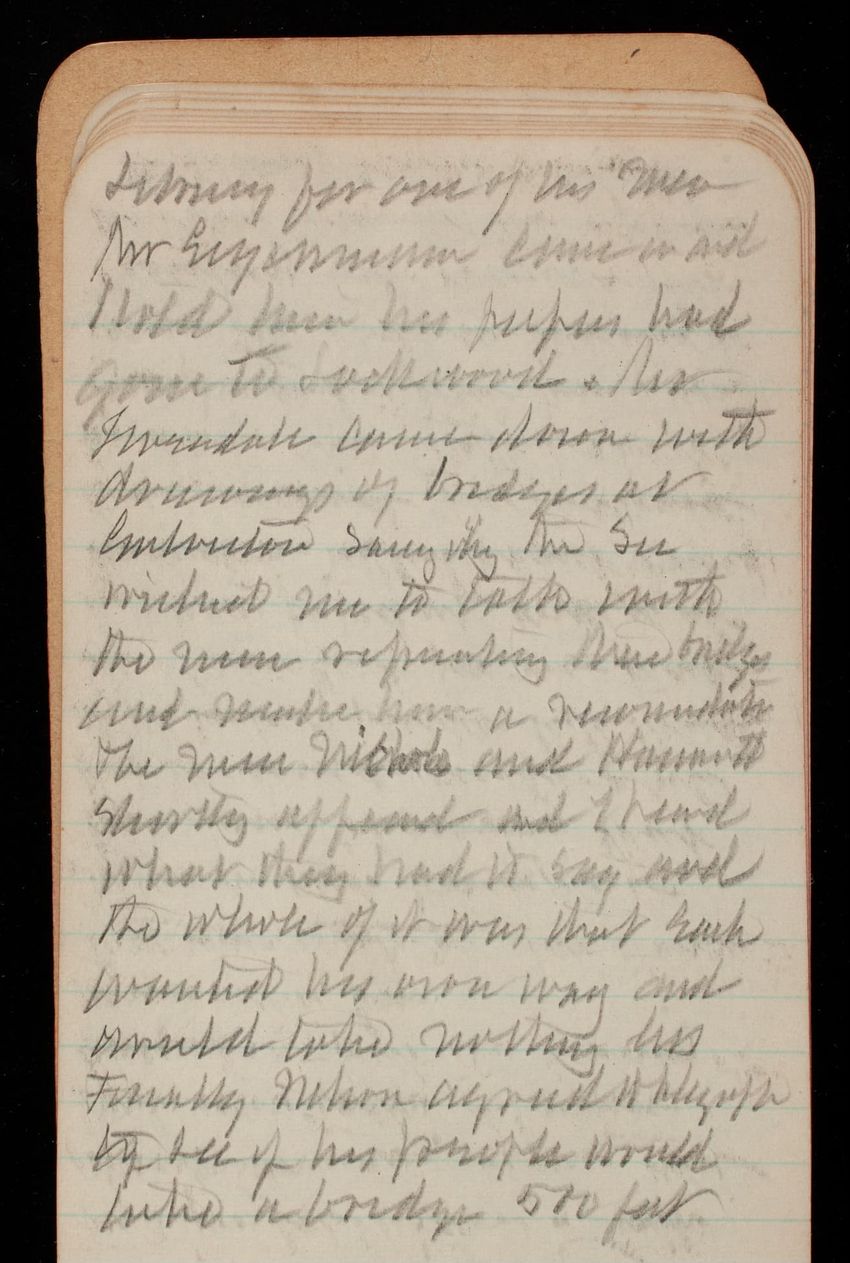 for one of his men
Mr came in and
I told him his papers had
gone to Lockwood. Mr
came down with
drawings of bridges at
Galveston saying the Sec
wished me to talk with
the men repenting these bridges
and make him a
The men and Hammett
shortly appeard and I heard
what they had to say and
the whole of it was that each
wanted his own way and
would take nothing less
Finally Nelson agreed to telegraph
to see if his people would
take a bridge 500 feet